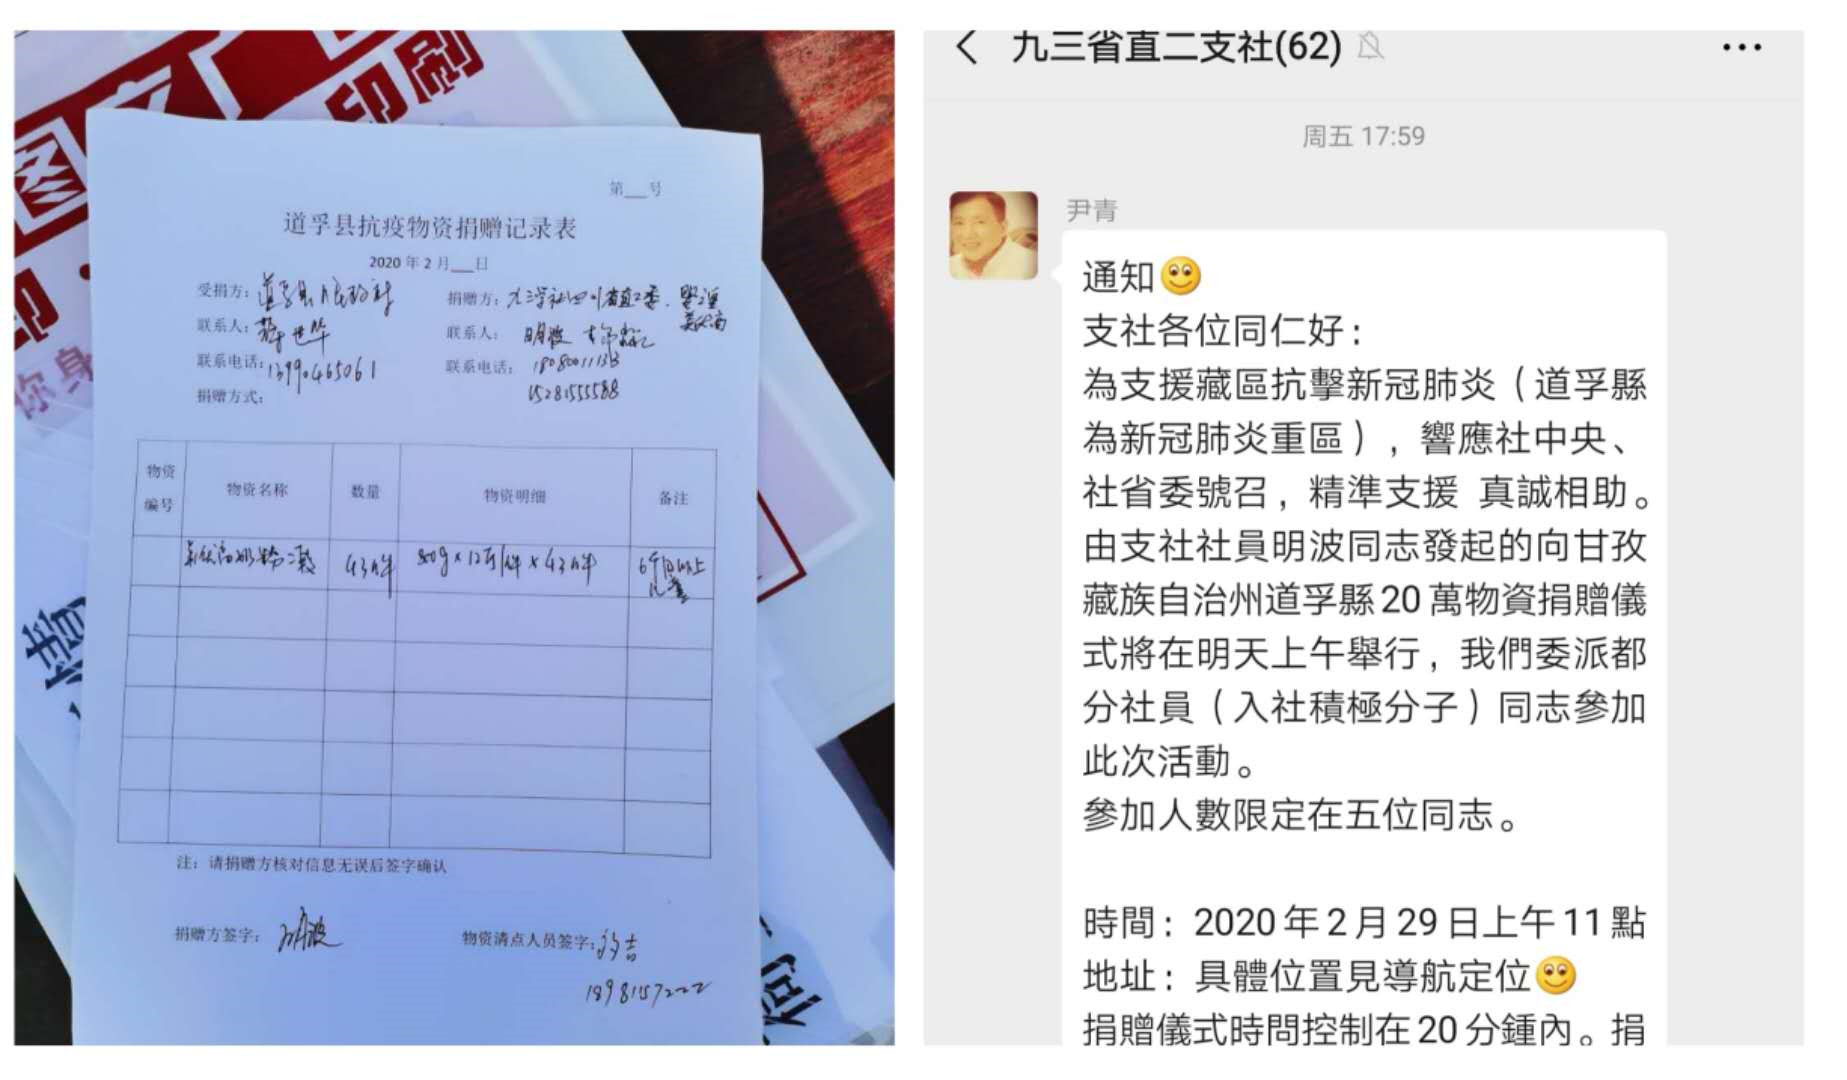 图文
印刷
印·
你身
第___号
道孚县抗疫物资捐赠记录表
2020 年 2 月___日
受捐方：道孚县人民政府
捐赠方：九三学社四川省直工委、
联系人：
联系人：明波
联系电话：13990465061
联系电话：18080011133
15281555588
捐赠方式：
物资编号 物资名称 数量 物资明细 备注
43件 800g×12/件×43件 6个月以上
儿童
注：请捐赠方核对信息无误后签字确认
捐赠方签字：明波
物资清点人员签字：
18981157222
九三省直二支社(62)
周五 17:59
尹青
通知🙂
支社各位同仁好：
為支援藏區抗擊新冠肺炎（道孚縣
為新冠肺炎重區），響應社中央、
社省委號召，精準支援 真誠相助。
由支社社員明波同志發起的向甘孜
藏族自治州道孚縣20萬物資捐贈儀
式將在明天上午舉行，我們委派都
分社員（入社積極分子）同志參加
此次活動。
參加人數限定在五位同志。
時間：2020年2月29日上午11點
地址：具體位置見導航定位🙂
捐贈儀式時間控制在20分鍾內。捐